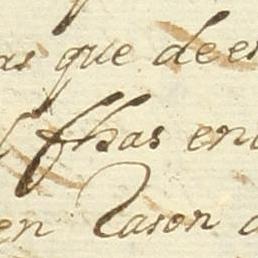 as que de es
fhas en
en Rason a